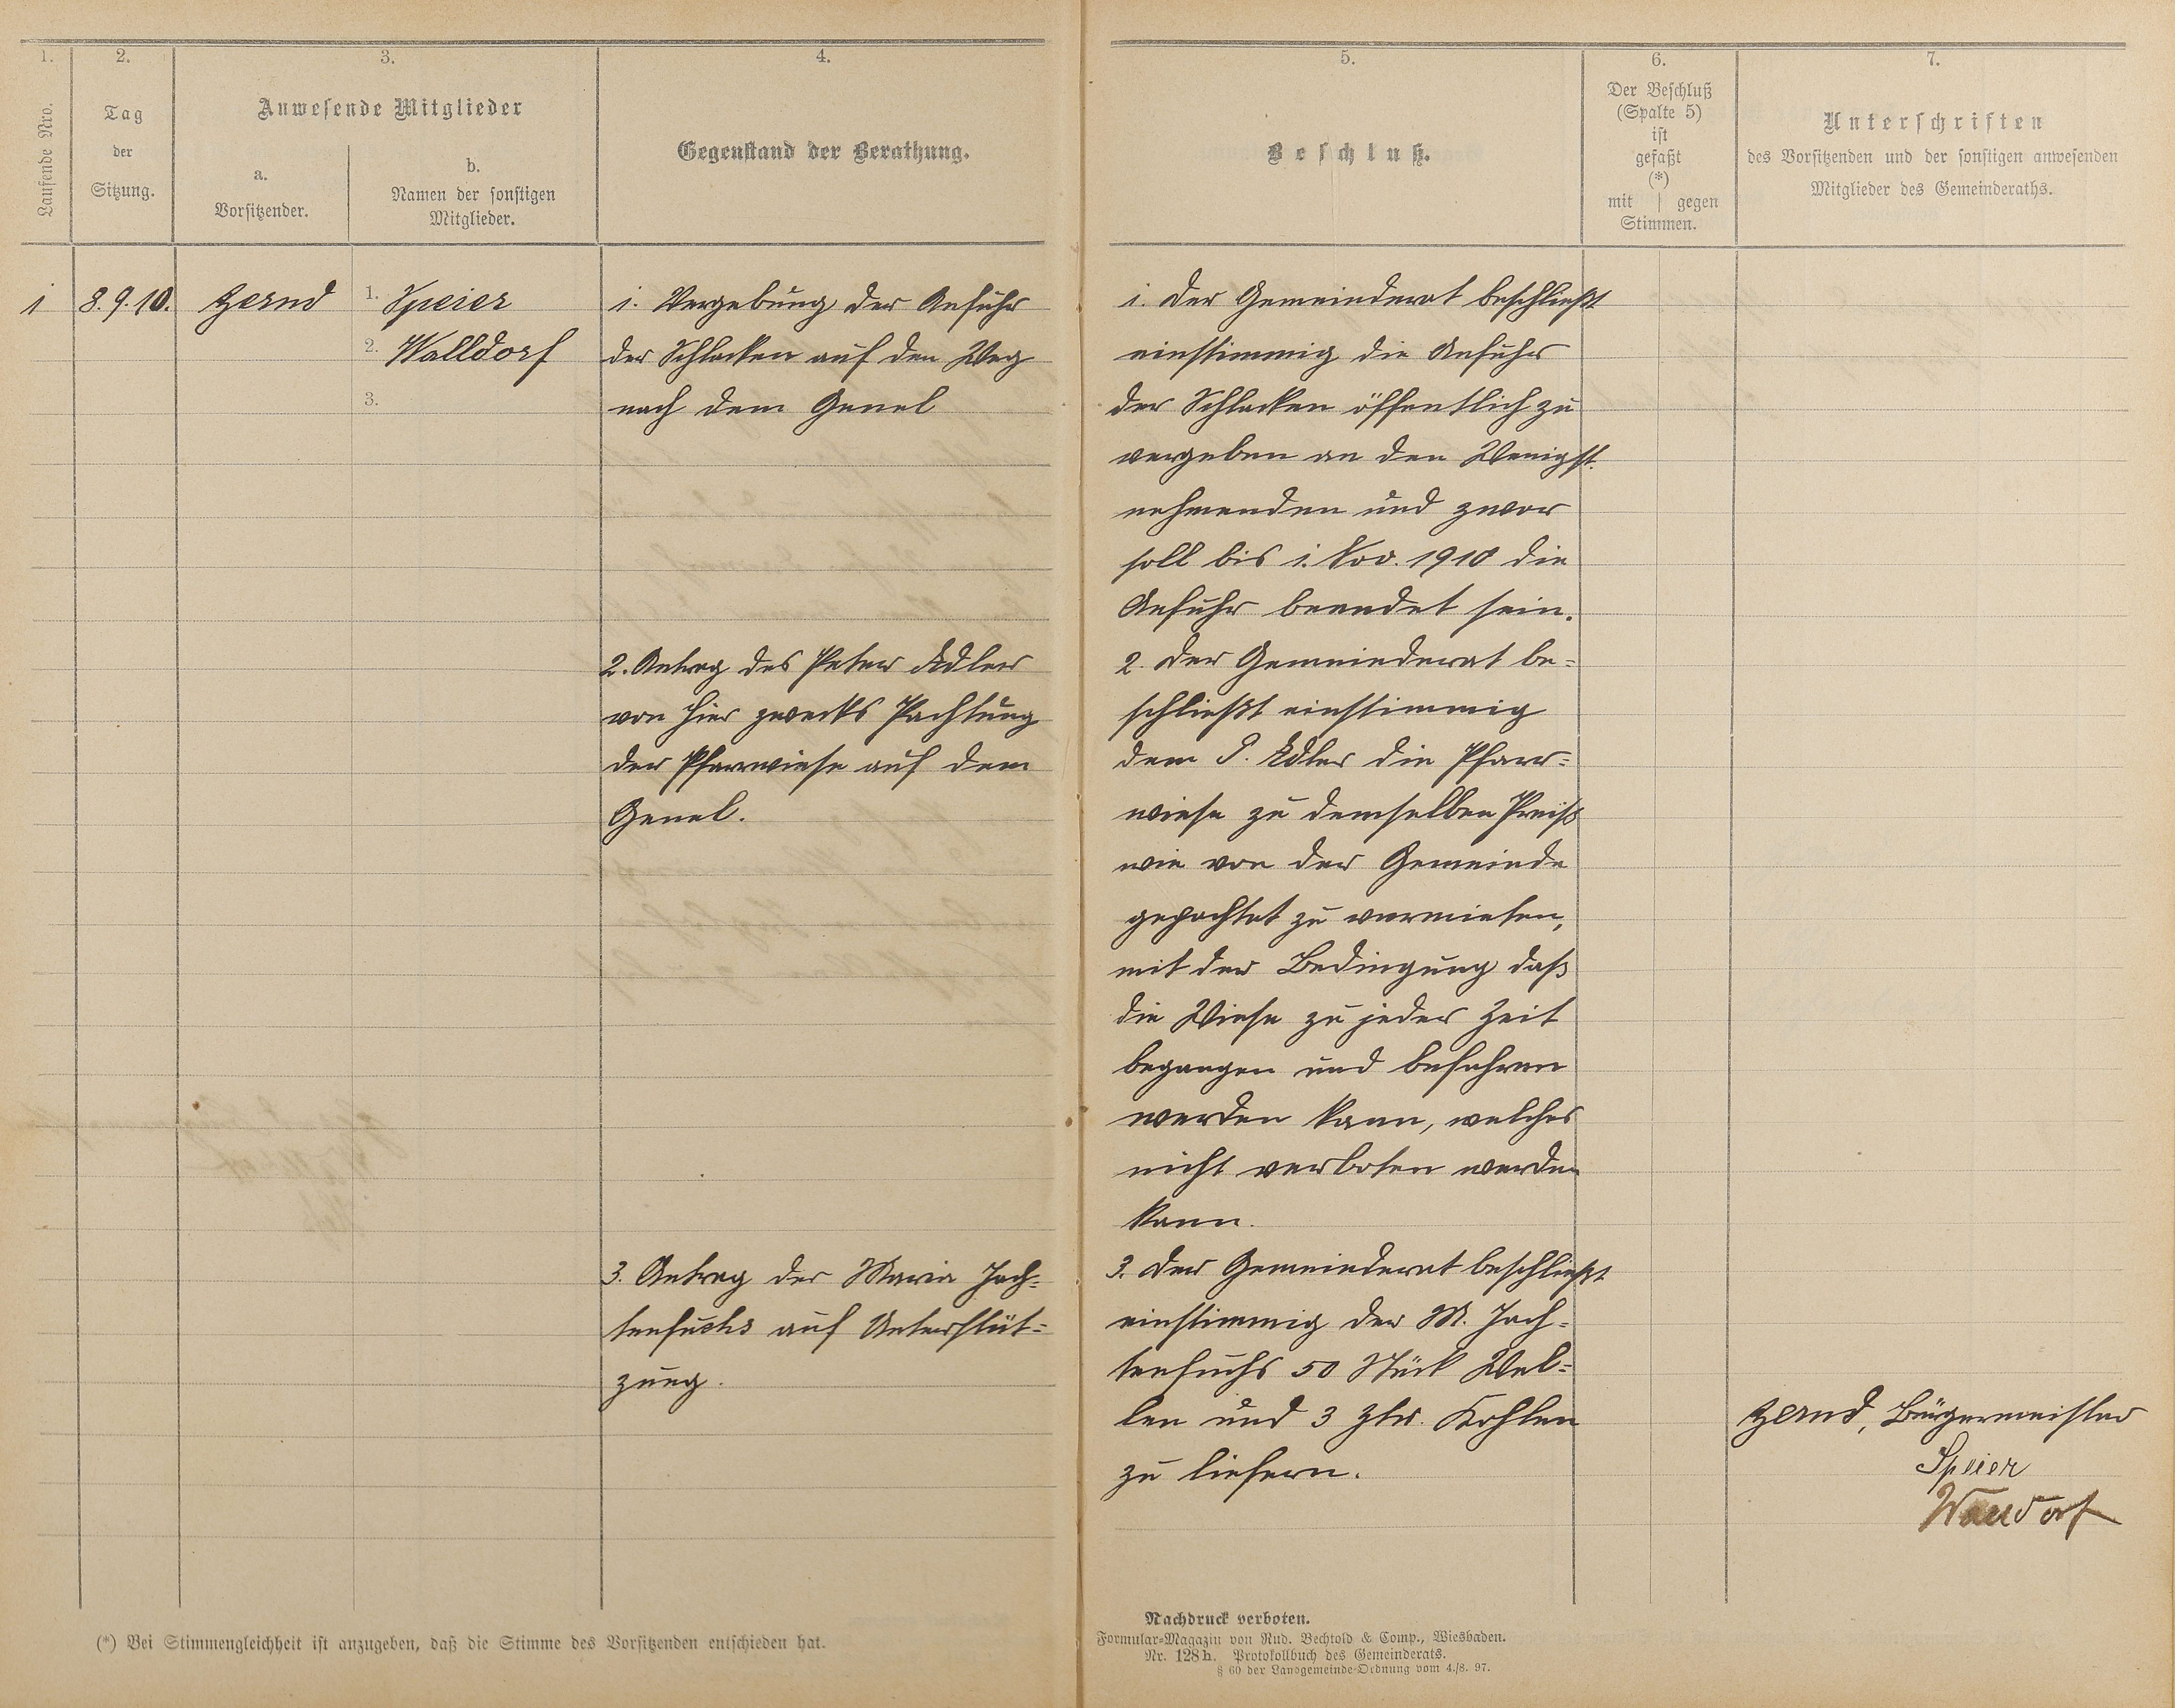 1.
2.
3.
4.
5.
6.
7.
Laufende Nro.
Tag
der
Sitzung.
Anwesende Mitglieder
a.
Vorsitzender.
b.
Namen der sonstigen
Mitglieder.
Gegenstand der Berathung.
Beschluß.
Der Beschluß
(Spalte 5)
ist
gefaßt
(*)
mit | gegen
Stimmen.
Unterschriften
des Vorsitzenden und der sonstigen anwesenden
Mitglieder des Gemeinderaths.
1
8.9.10.
Zernd
1. Speier
2. Walldorf
3.
1. Vergebung der Anfuhr
der Schlacken auf den Weg
nach dem Genel
2. Antrag des Peter Adler
von hier zwecks Pachtung
der Pfarrwiese auf dem
Genel.
3. Antrag der Maria Joch-
tenfuchs auf Unterstüt-
zung.
1. Der Gemeinderat beschließt
einstimmig die Anfuhr
der Schlacken öffentlich zu
vergeben an den Wenigst-
nehmenden und zwar
soll bis 1. Nov. 1910 die
Anfuhr beendet sein.
2. Der Gemeinderat be-
schließt einstimmig
dem P. Adler die Pfarr-
wiese zu demselben Preiß
wie von der Gemeinde
gepachtet zu vermieten,
mit der Bedingung daß
die Wiese zu jeder Zeit
begangen und befahren
werden kann, welches
nicht verboten werden
kann.
3. Der Gemeinderat beschließt
einstimmig der M. Joch-
tenfuchs 50 Stück Wel-
len und 3 Ztr. Kohlen
zu liefern.
Zernd, Bürgermeister
Speier
Walldorf
(*) Bei Stimmengleichheit ist anzugeben, daß die Stimme des Vorsitzenden entschieden hat.
Nachdruck verboten.
Formular-Magazin von Rud. Bechtold & Comp., Wiesbaden.
Nr. 128h. Protokollbuch des Gemeinderats.
§ 60 der Landgemeinde-Ordnung vom 4./8. 97.